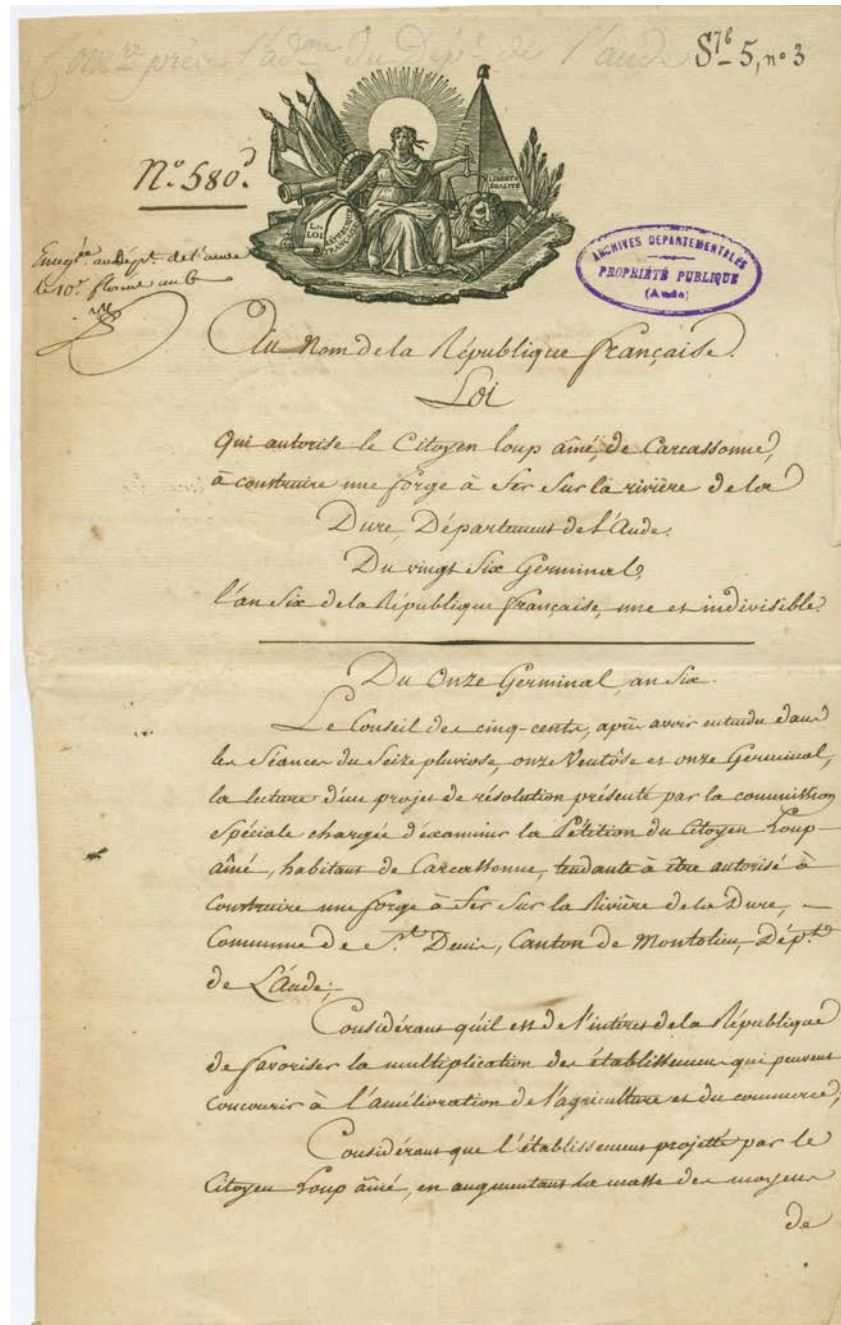 Com.re près l'ad.on du Dép.t de l'aude
S 76 5, n° 3
N.° 580.
LA LOI
RÉPUBLIQUE FRANÇAISE
LIBERTÉ ÉGALITÉ
ARCHIVES DEPARTEMENTALES
PROPRIÉTÉ PUBLIQUE
(Aude)
au Dép.t de l'aude
le 10.e floreal an 6
Au Nom de la République française.
Loi
Qui autorise le Citoyen Loup aîné, de Carcassonne,
à construire une forge à fer sur la rivière de la
Dure, Département de l'Aude.
Du vingt Six Germinal,
l'an Six de la République française, une et indivisible.
Du Onze Germinal, an Six.
Le Conseil des cinq-cents, après avoir entendu dans
les Séances du Seize pluviose, onze Ventôse et onze Germinal,
la lecture d'un projet de résolution présenté par la commission
Spéciale chargée d'éxaminer la Pétition du Citoyen Loup
aîné, habitant de Carcassonne, tendante à être autorisé à
Construire une forge à Fer Sur la Rivière de la Dure, —
Commune de S.t Denis, Canton de Montolieu, Dép.t
de L'Aude;
Considérant qu'il est de l'intéret de la République
de favoriser la multiplication des établissemens qui peuvent
concourir à l'amélioration de l'agriculture et du commerce;
Considérant que l'établissement projetté par le
Citoyen Loup aîné, en augmentant la masse des moyens
de